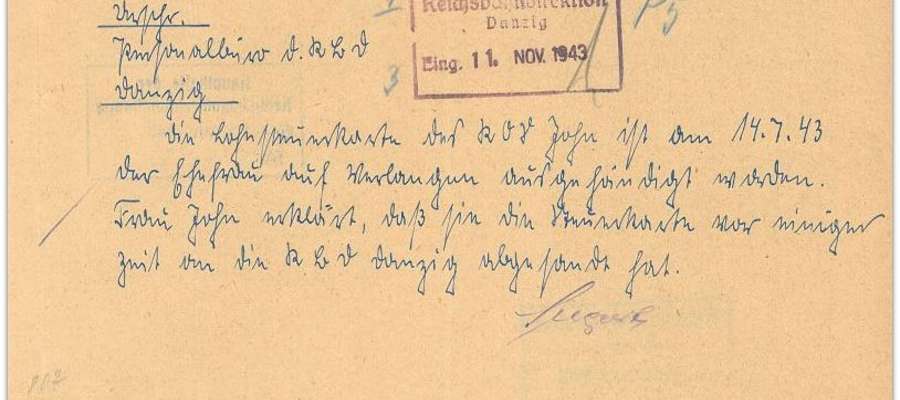 Urschr.
Reichsbahndirektion
Danzig
Eing. 11. NOV. 1943
Personalbüro d. RBD
Danzig
Die Lohnsteuerkarte des ROS John ist am 14.7.43
der Ehefrau auf Verlangen ausgehändigt worden.
Frau John erklärt, daß sie die Steuerkarte vor einiger
Zeit an die RBD Danzig abgesandt hat.